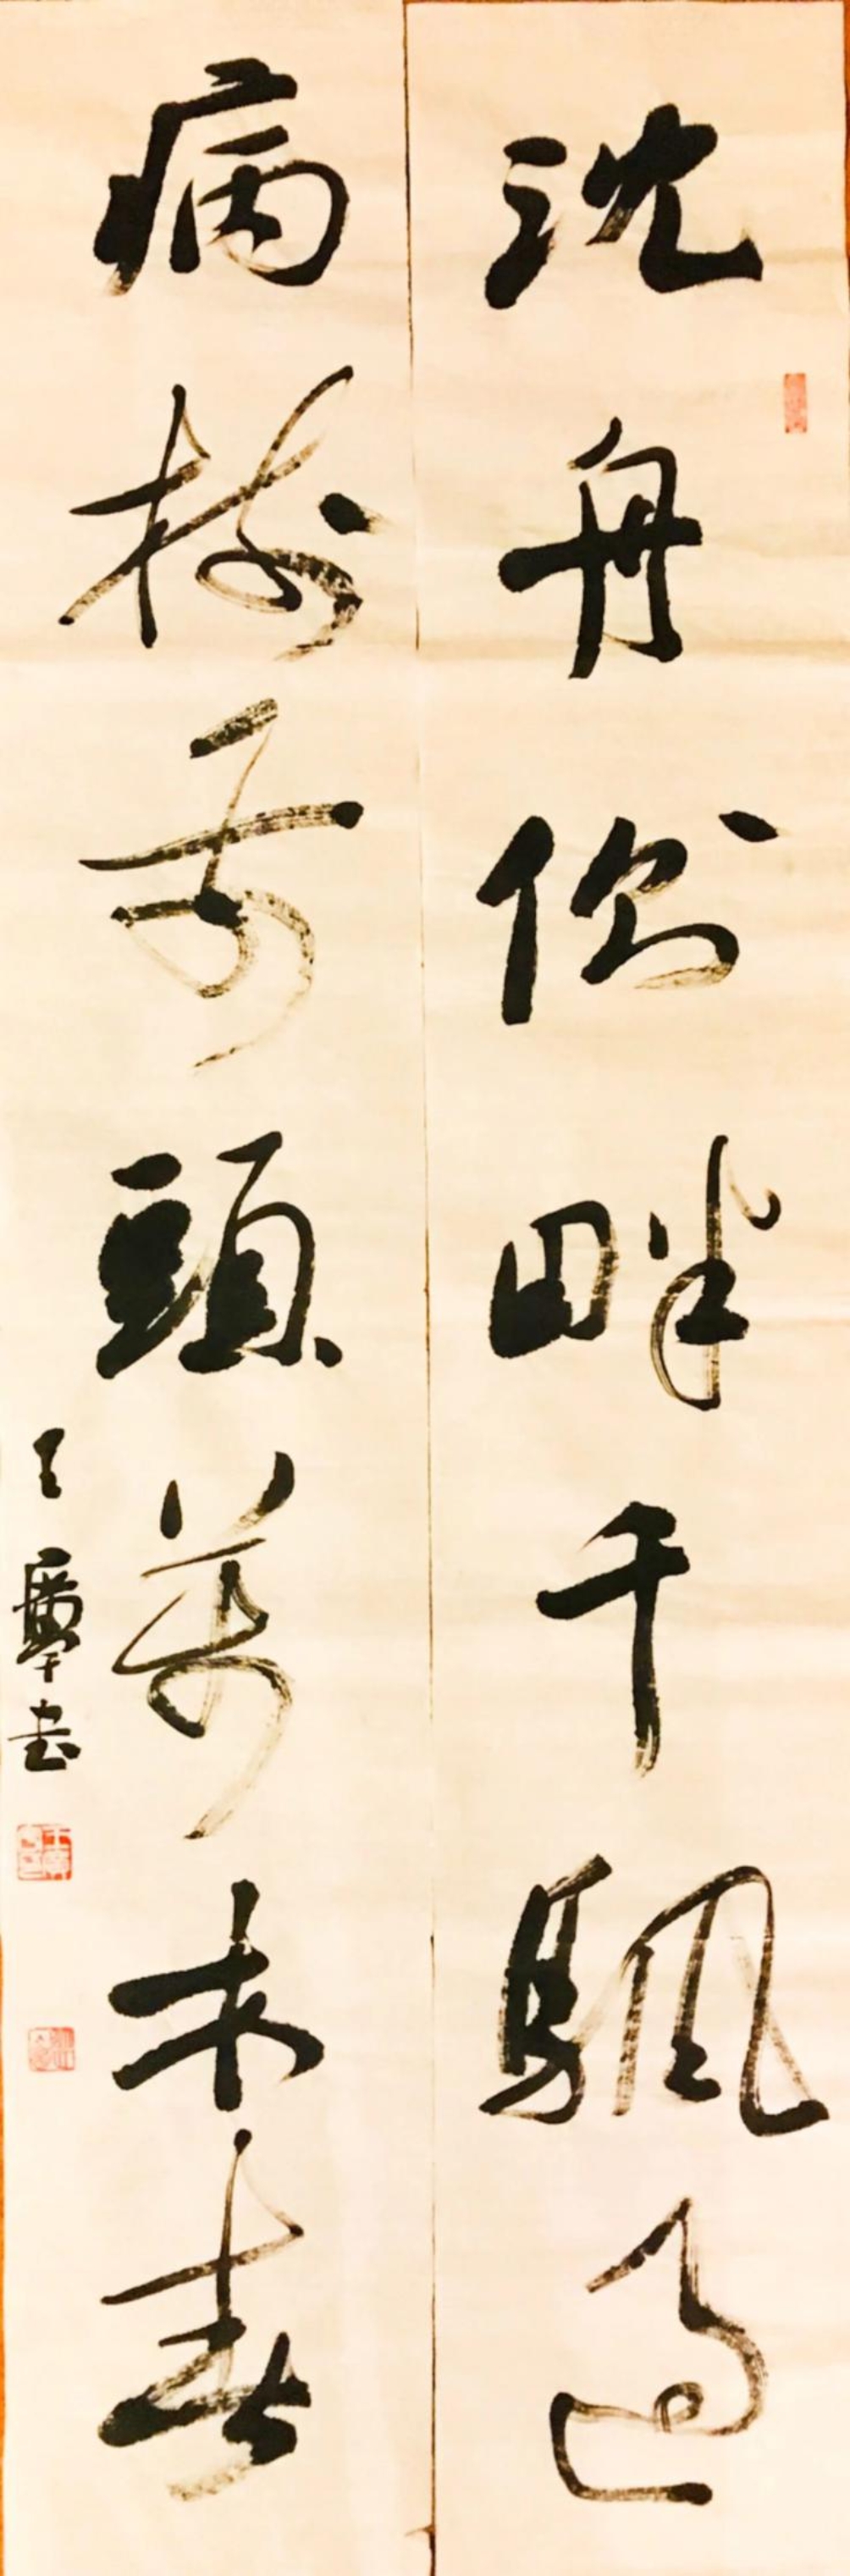 沈舟側畔千颿過
病樹前頭萬木春
王書